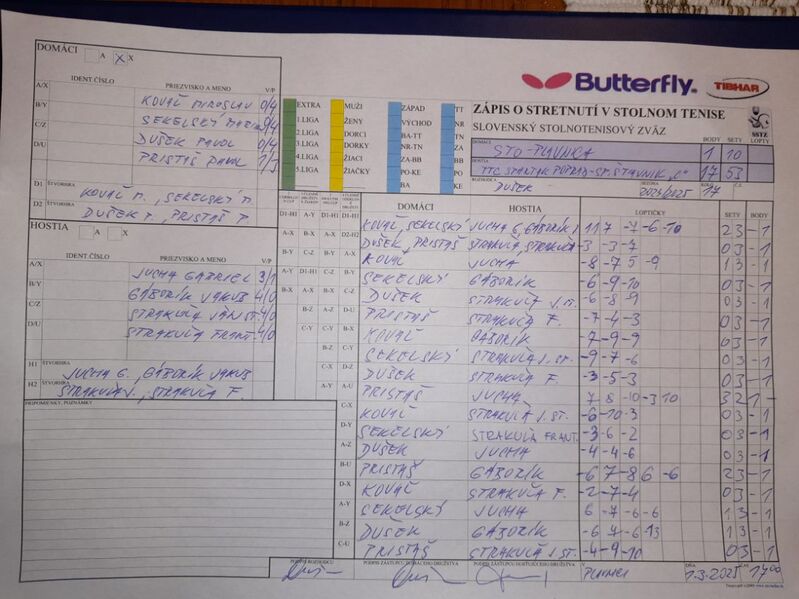 DOMÁCI A X X
IDENT. ČÍSLO PRIEZVISKO A MENO V/P
A/X KOVÁČ MIROSLAV 0/4
B/Y SEKELSKÝ
C/Z DUŠEK PAVOL 0/4
D/U PRISTÁŠ PAVOL 1/3
D1 ŠTVORHRA KOVÁČ M., SEKELSKÝ M.
D2 ŠTVORHRA DUŠEK P., PRISTÁŠ P.
HOSTIA A X
IDENT. ČÍSLO PRIEZVISKO A MENO V/P
A/X JUCHA GABRIEL 3/1
B/Y GÁBORÍK JAKUB 4/0
C/Z STRAKUĽA JÁN ST. 4/0
D/U STRAKUĽA FRANT. 4/0
H1 ŠTVORHRA JUCHA G., GÁBORÍK JAKUB
H2 ŠTVORHRA STRAKUĽA J., STRAKUĽA F.
PRIPOMIENKY, POZNÁMKY
Butterfly TIBHAR
EXTRA MUŽI ZÁPAD TT
1.LIGA ŽENY VÝCHOD NR
2.LIGA DORCI BA-TT TN
3.LIGA DORKY NR-TN ZA
4.LIGA ŽIACI ZA-BB BB
5.LIGA ŽIAČKY PO-KE PO
BA KE
ZÁPIS O STRETNUTÍ V STOLNOM TENISE
SLOVENSKÝ STOLNOTENISOVÝ ZVÄZ
SSTZ
BODY SETY LOPTY
DOMÁCI STO-PLAVNICA 1 10
HOSTIA TTC STARTAK POPRAD-SP. ŠTIAVNIK "C" 17 53
ROZHODCA DUŠEK SEZÓNA 2024/2025 KOLO 17
DOMÁCI HOSTIA LOPTIČKY SETY BODY
KOVÁČ, SEKELSKÝ JUCHA G, GÁBORÍK J. 11 7 -7 -6 -10 23 -1
DUŠEK, PRISTÁŠ STRAKUĽA, STRAKUĽA -3 -3 -7 03 -1
KOVÁČ JUCHA -8 -7 5 -9 13 -1
SEKELSKÝ GÁBORÍK -6 -9 -10 03 -1
DUŠEK STRAKUĽA J. ST. -6 -8 -9 03 -1
PRISTÁŠ STRAKUĽA F. -7 -4 -3 03 -1
KOVÁČ GÁBORÍK -7 -9 -9 03 -1
SEKELSKÝ STRAKUĽA J. ST. -9 -7 -6 03 -1
DUŠEK STRAKUĽA F. -3 -5 -3 03 -1
PRISTÁŠ JUCHA 7 8 -10 -3 10 32 1 -
KOVÁČ STRAKUĽA J. ST. -6 -10 -3 03 -1
SEKELSKÝ STRAKUĽA FRANT. -3 -6 -2 03 -1
DUŠEK JUCHA -4 -4 -6 03 -1
PRISTÁŠ GÁBORÍK -6 7 -8 6 -6 23 -1
KOVÁČ STRAKUĽA F. -2 -7 -4 03 -1
SEKELSKÝ JUCHA 6 -7 -6 -6 13 -1
DUŠEK GÁBORÍK -6 7 -6 -13 13 -1
PRISTÁŠ STRAKUĽA J. ST. -4 -9 -10 03 -1
PODPIS ROZHODCU PODPIS ZÁSTUPCU DOMÁCEHO DRUŽSTVA PODPIS ZÁSTUPCU HOSŤUJÚCEHO DRUŽSTVA V DŇA
1.3.2025 17 00